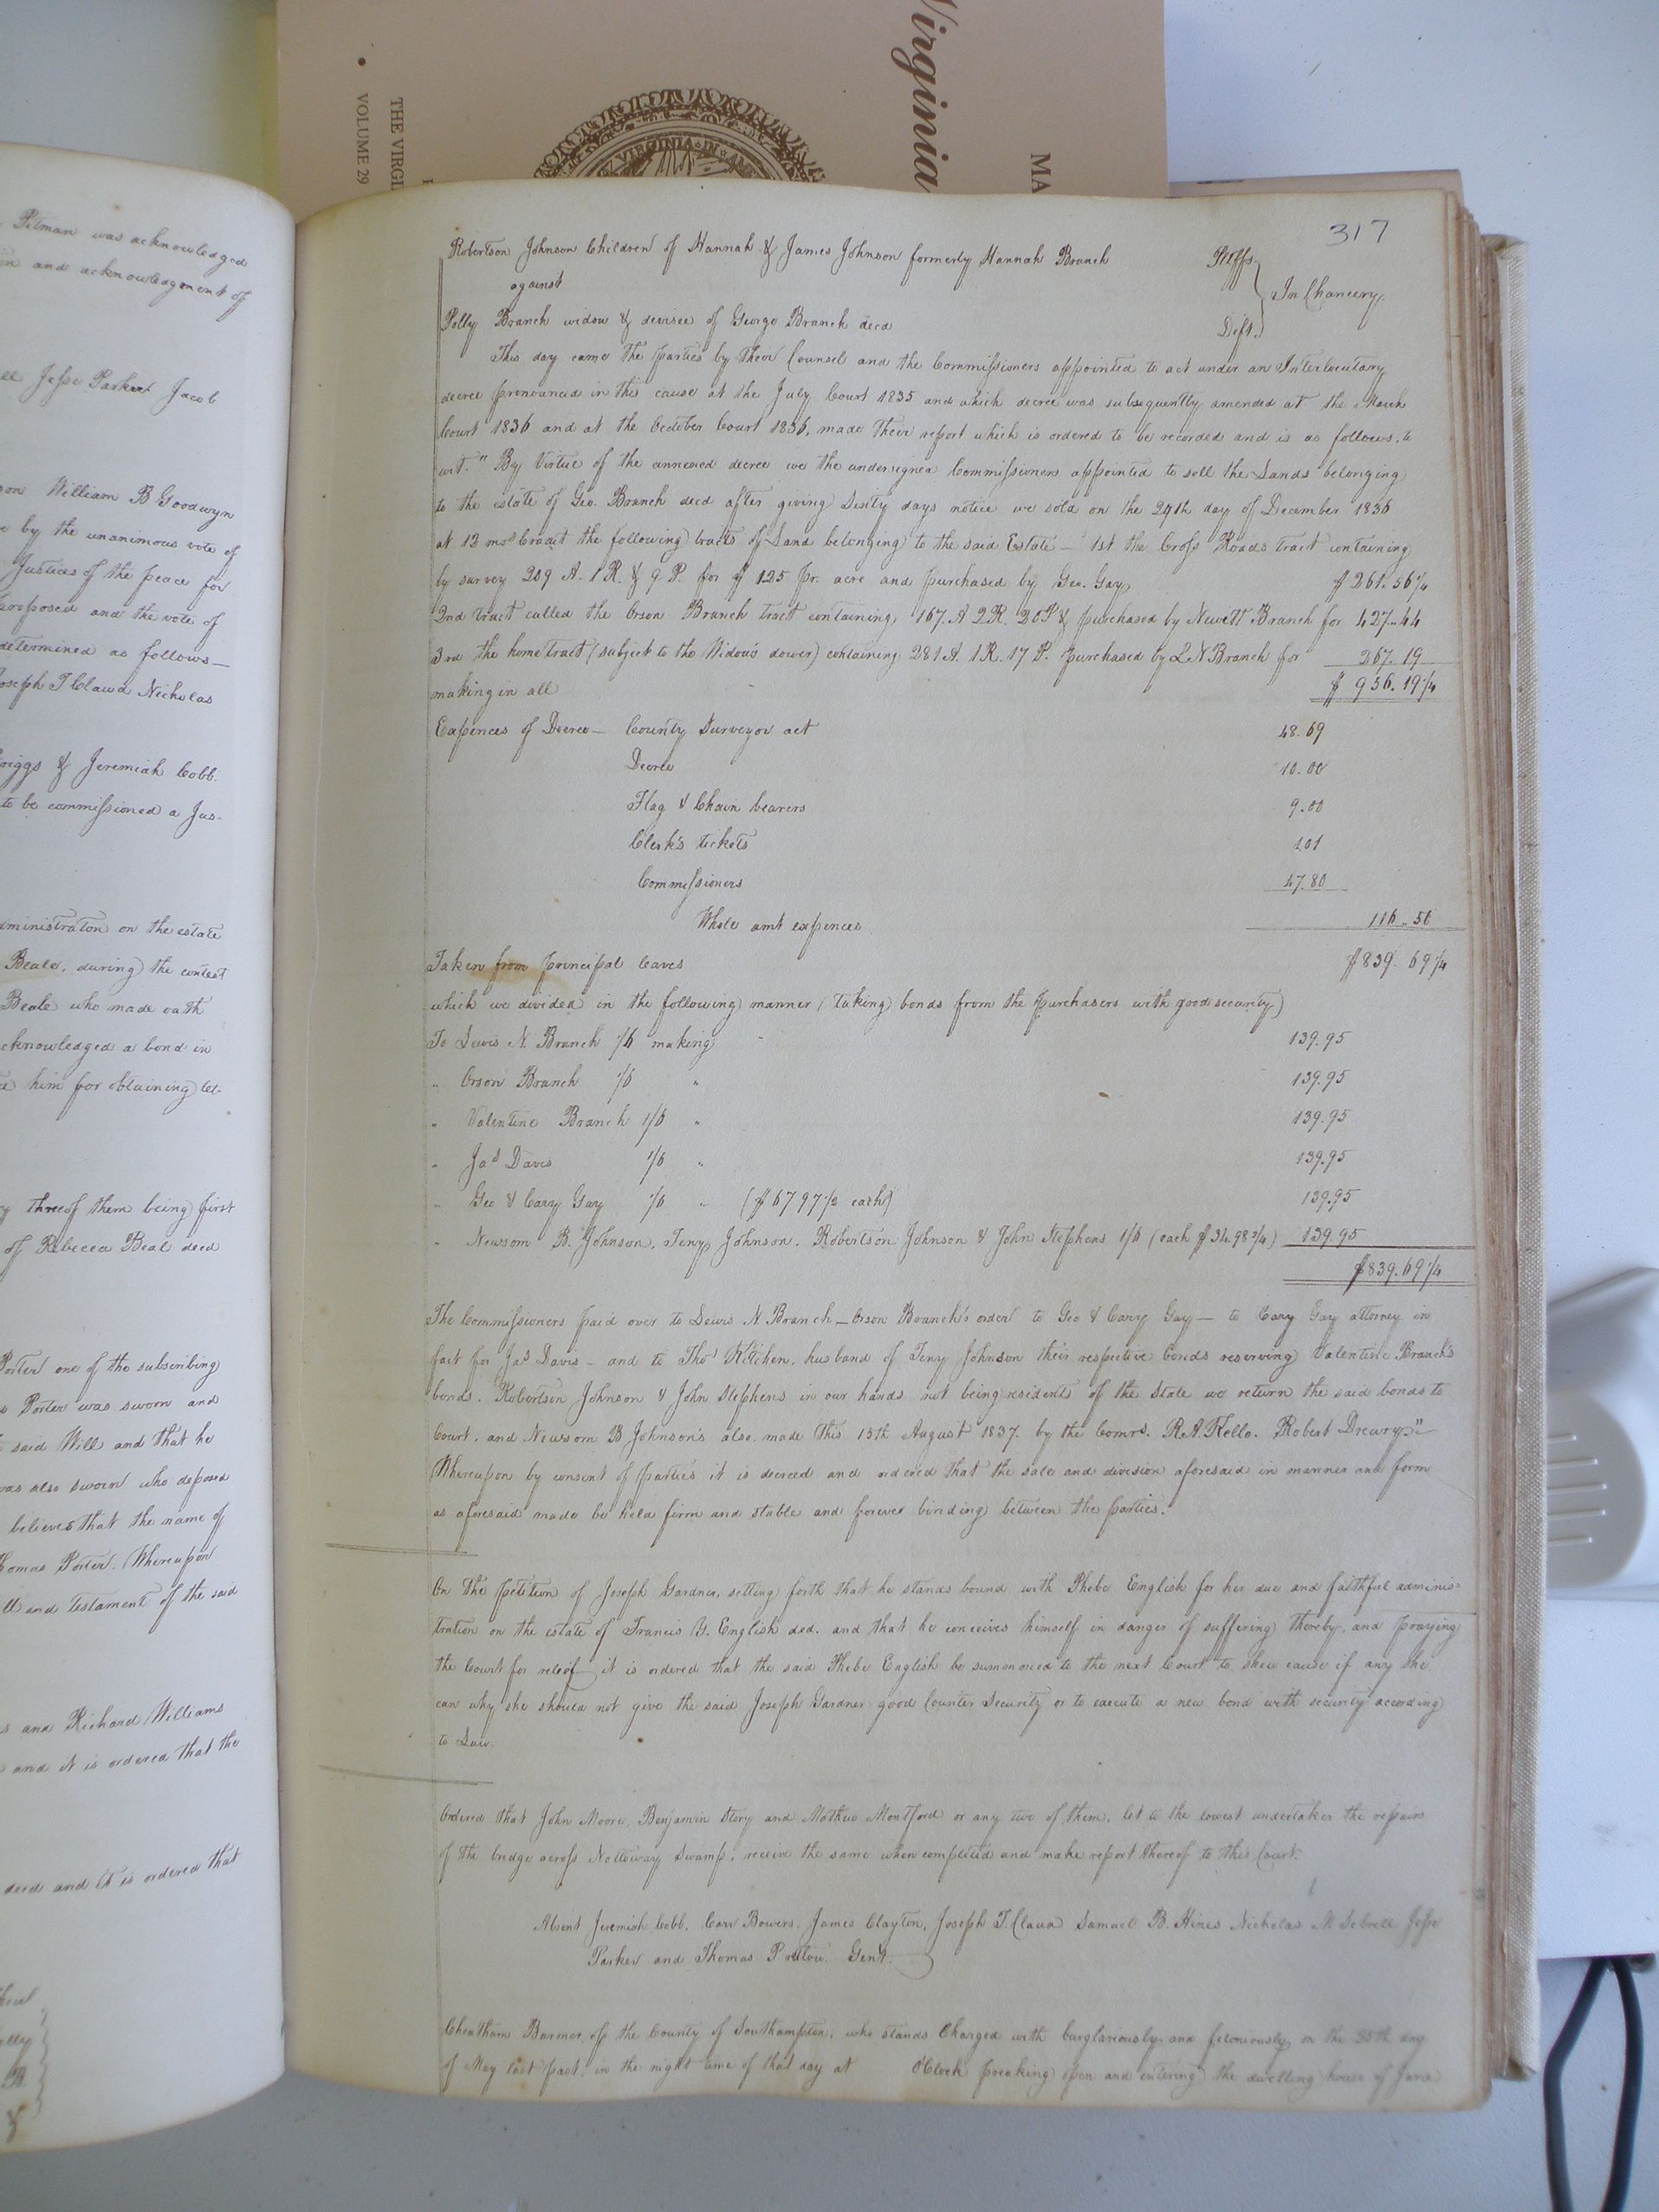 Virginia
MA
THE VIRGI
VOLUME 29
VIRGINIA IN
Pitman was acknowledged
and acknowledgment of
Jesse Parker Jacob
William B Goodwyn
by the unanimous vote of
Justices of the peace for
proposed and the vote of
determined as follows—
Joseph T Claud Nicholas
riggs & Jeremiah Cobb.
to be commissioned a Jus-
ministration on the estate
Beale, during the contest
Beale who made oath
cknowledged a bond in
him for obtaining let-
three of them being first
of Rebecca Beal decd
Porter one of the subscribing
Porter was sworn and
said Will and that he
was also sworn who deposed
believes that the name of
Thomas Porter. Whereupon
ll and testament of the said
s and Richard Williams
and it is ordered that the
decd and it is ordered that
317
Robertson Johnson Children of Hannah & James Johnson formerly Hannah Branch Pltffs
against In Chancery
Polly Branch widow & devisee of George Branch decd Deft.
This day came the parties by their Counsel and the Commissioners appointed to act under an Interlocutory
decree pronounced in this cause at the July Court 1835 and which decree was subsequently amended at the March
Court 1836 and at the October Court 1836, made their report which is ordered to be recorded and is as follows, to
wit. "By Virtue of the annexed decree we the undersigned Commissioners appointed to sell the Lands belonging
to the estate of Geo. Branch decd after giving Sixty days notice we sold on the 24th day of December 1836
at 12 mos Credit the following tracts of Land belonging to the said Estate — 1st the Cross Roads tract containing
by survey 209 A. 1 R. & 9 P. for $ 125 pr. acre and purchased by Geo. Gay $ 261. 56 1/4
2nd tract called the Orson Branch tract containing 167. A 2 R. 20 P & purchased by Newitt Branch for 427..44
3rd the home tract (subject to the Widow's dower) containing 281 A. 1 R. 17 P. purchased by L N Branch for 267. 19
making in all $ 956. 19 1/4
Expences of Decree — County Surveyor act 48.69
Decree 10.00
Flag & Chain bearers 9.00
Clerk's tickets 1.01
Commissioners 47.80
Whole amt expences 116..50
Taken from principal leaves $839. 69 1/4
which we divided in the following manner (taking bonds from the purchasers with good security)
To Lewis N. Branch 1/6 making 139.95
" Orson Branch 1/6 " 139.95
" Valentine Branch 1/6 " 139.95
" Jas Davis 1/6 " 139.95
" Geo & Cary Gay 1/6 " ($67 97 1/2 each) 139.95
" Newsom B. Johnson, Teny Johnson. Robertson Johnson & John Stephens 1/6 (each $34.98 3/4) 139.95
$839.69 1/4
The Commissioners paid over to Lewis N. Branch — Orson Branch's order to Geo & Cary Gay — to Cary Gay attorney in
fact for Jas Davis — and to Thos Kitchen, husband of Teny Johnson their respective bonds reserving Valentine Branch's
bonds. Robertson Johnson & John Stephens in our hands not being residents of the State we return the said bonds to
Court. and Newsom B Johnson's also. made this 15th August 1837. by the Comrs. R. A. Kello. Robert Drewry"
Whereupon by consent of parties it is decreed and ordered that the sale and division aforesaid in manner and form
as aforesaid made be held firm and stable and forever binding between the parties.
On the petition of Joseph Gardner, setting forth that he stands bound with Phebe English for her due and faithful adminis=
tration on the estate of Francis Y. English ded. and that he conceives himself in danger of suffering thereby, and praying
the Court for releif it is ordered that the said Phebe English be summoned to the next Court to shew cause if any she
can why she should not give the said Joseph Gardner good Counter Security or to execute a new bond with security according
to Law.
Ordered that John Moore, Benjamin Story and Mathew Montford or any two of them, let to the lowest undertaker the repairs
of the bridge across Nottoway Swamp, receive the same when completed and make report thereof to this Court.
Absent Jeremiah Cobb, Carr Bowers, James Clayton, Joseph T. Claud Samuel B. Hines Nicholas M Sebrell Jesse
Parker and Thomas Pretlow. Gent.
Cheatham Barmer, of the County of Southampton, who stands Charged with burglariously and feloniously on the 25th day
of May last past in the night time of that day at OClock breaking open and entering the dwelling house of Jane